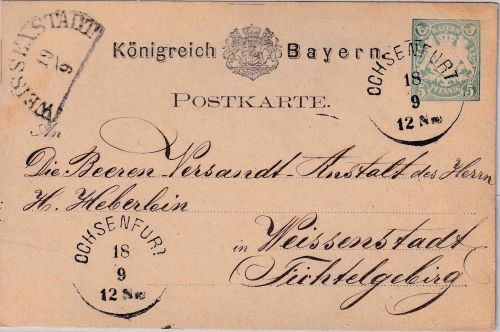 WEISSENSTADT
19
9
Königreich Bayern.
BAYERN
5 5
PFENNIG
OCHSENFURT
18
9
12 Nm
POSTKARTE.
An
Die Beeren-Versandt-Anstalt des Herrn
H. Heberlein
in Weissenstadt
Fichtelgebirg
OCHSENFURT
18
9
12 Nm